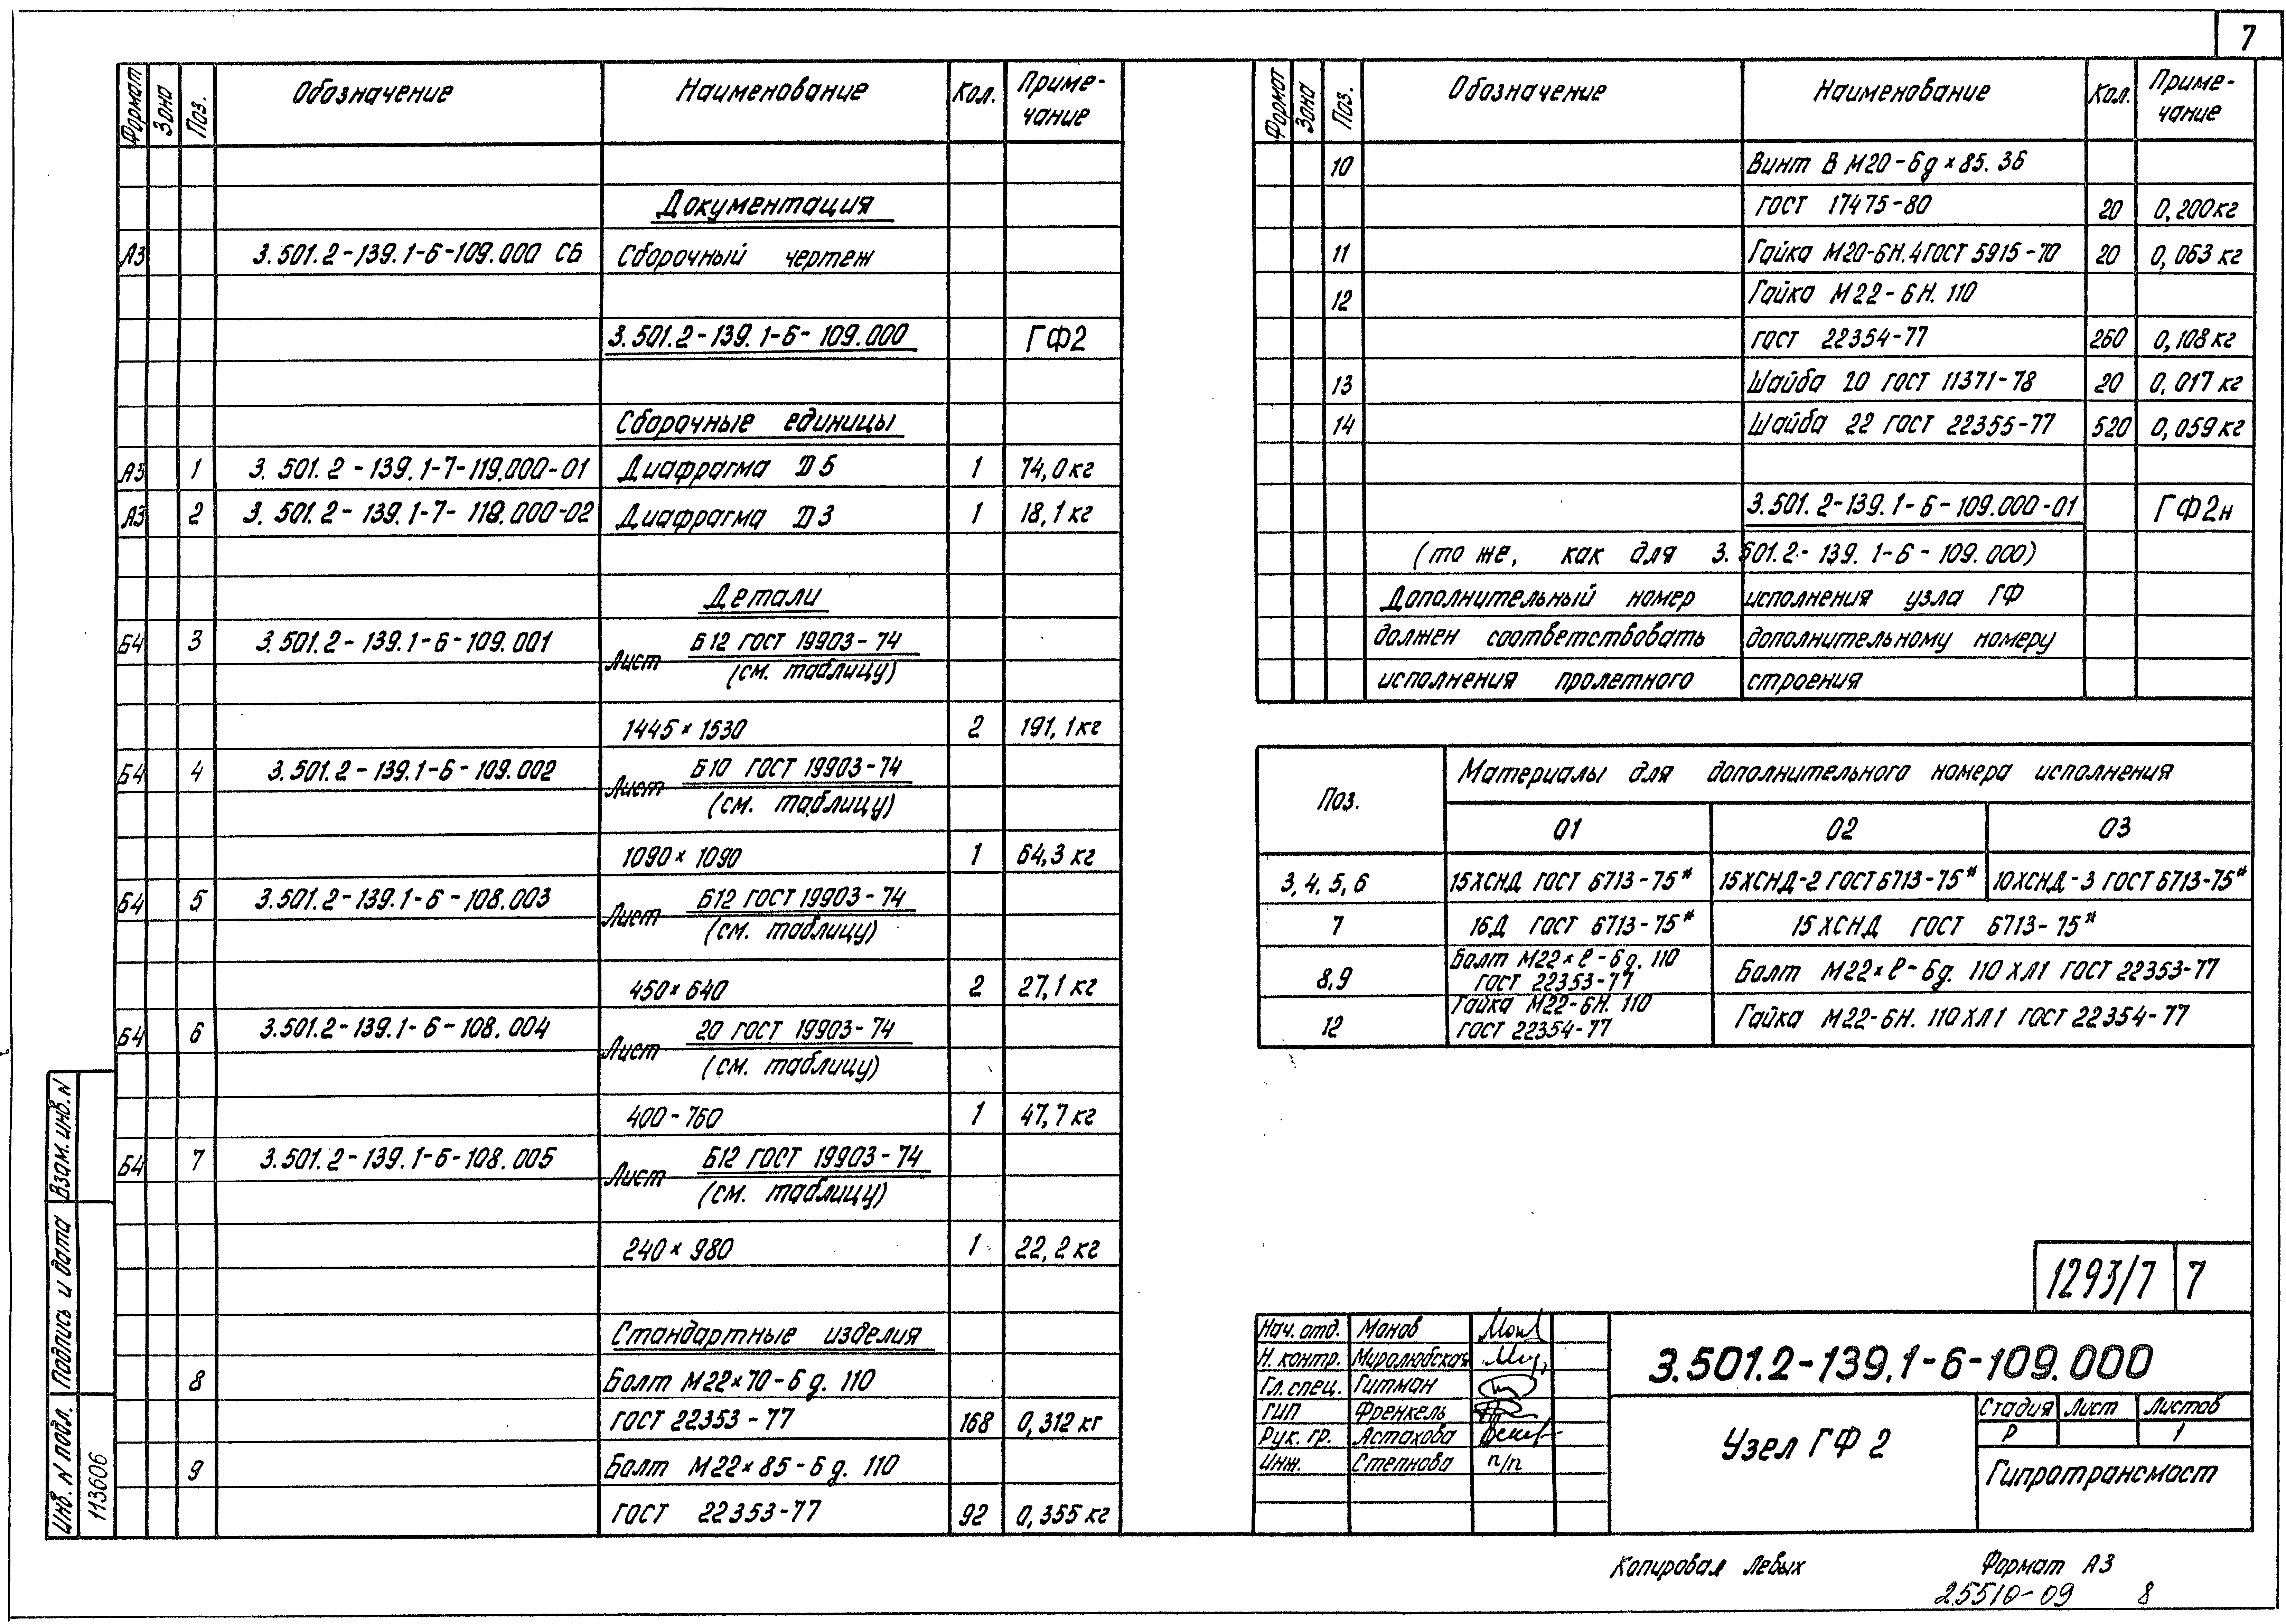 7
Формат Зона Поз. Обозначение Наименование Кол. Приме-чание
Документация
А3 3.501.2-139.1-6-109.000 СБ Сборочный чертеж
3.501.2-139.1-6-109.000 ГФ2
Сборочные единицы
А3 1 3.501.2-139.1-7-119.000-01 Диафрагма Д5 1 74,0 кг
А3 2 3.501.2-139.1-7-119.000-02 Диафрагма Д3 1 18,1 кг
Детали
Б4 3 3.501.2-139.1-6-109.001 Лист Б12 ГОСТ 19903-74
(см. таблицу)
1445×1530 2 191,1 кг
Б4 4 3.501.2-139.1-6-109.002 Лист Б10 ГОСТ 19903-74
(см. таблицу)
1090×1090 1 64,3 кг
Б4 5 3.501.2-139.1-6-108.003 Лист Б12 ГОСТ 19903-74
(см. таблицу)
450×640 2 27,1 кг
Б4 6 3.501.2-139.1-6-108.004 Лист 20 ГОСТ 19903-74
(см. таблицу)
400-760 1 47,7 кг
Б4 7 3.501.2-139.1-6-108.005 Лист Б12 ГОСТ 19903-74
(см. таблицу)
240×980 1 22,2 кг
Стандартные изделия
8 Болт М22×70-6g. 110
ГОСТ 22353-77 168 0,312 кг
9 Болт М22×85-6g. 110
ГОСТ 22353-77 92 0,355 кг
Формат Зона Поз. Обозначение Наименование Кол. Приме-чание
10 Винт В М20-6g×85.36
ГОСТ 17475-80 20 0,200 кг
11 Гайка М20-6Н.4 ГОСТ 5915-70 20 0,063 кг
12 Гайка М22-6Н. 110
ГОСТ 22354-77 260 0,108 кг
13 Шайба 20 ГОСТ 11371-78 20 0,017 кг
14 Шайба 22 ГОСТ 22355-77 520 0,059 кг
3.501.2-139.1-6-109.000-01 ГФ2н
(то же, как для 3.501.2-139.1-6-109.000)
Дополнительный номер исполнения узла ГФ
должен соответствовать дополнительному номеру
исполнения пролетного строения
Поз. Материалы для дополнительного номера исполнения
01 02 03
3,4,5,6 15ХСНД ГОСТ 6713-75* 15ХСНД-2 ГОСТ 6713-75* 10ХСНД-3 ГОСТ 6713-75*
7 16Д ГОСТ 6713-75* 15ХСНД ГОСТ 6713-75*
8,9 Болт М22×ℓ-6g. 110
ГОСТ 22353-77 Болт М22×ℓ-6g. 110 ХЛ1 ГОСТ 22353-77
12 Гайка М22-6Н. 110
ГОСТ 22354-77 Гайка М22-6Н. 110ХЛ1 ГОСТ 22354-77
1293/7 7
Нач. отд. Монов
Н. контр. Миролюбская
Гл. спец. Гитман
ГИП Френкель
Рук. гр. Астахова
Инж. Степнова п/п
3.501.2-139.1-6-109.000
Узел ГФ 2
Стадия Лист Листов
Р 1
Гипротрансмост
Инв. N подл. Подпись и дата Взам. инв. N
113606
Копировал Левых Формат А3
25510-09 8